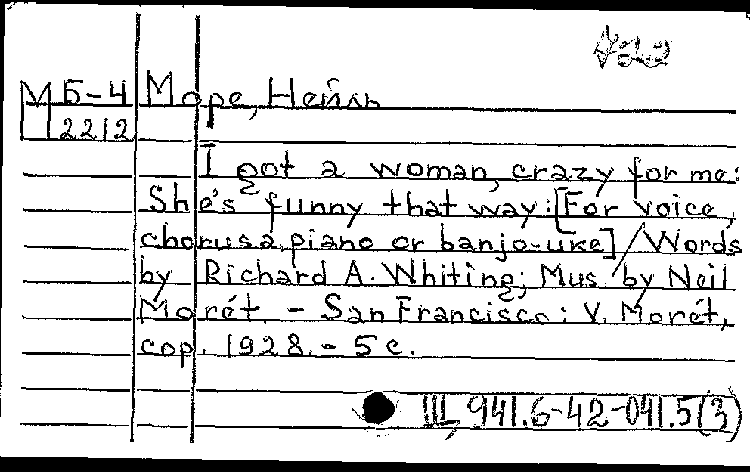 М Б-4 Море, Нейль
2212
I got a woman, crazy for me:
She's funny that way: [For voice,
chorus a. piano or banjo-uke] / Words
by Richard A. Whiting; Mus. by Neil
Morét. - San Francisco: V. Morét,
cop. 1928. - 5 c.
Ш, 941.6-42-041.5(3)